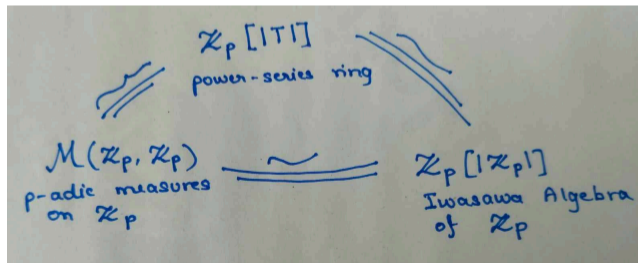 ℤp [|T|]
power-series ring
M(ℤp, ℤp)
p-adic measures
on ℤp
ℤp [|ℤp|]
Iwasawa Algebra
of ℤp